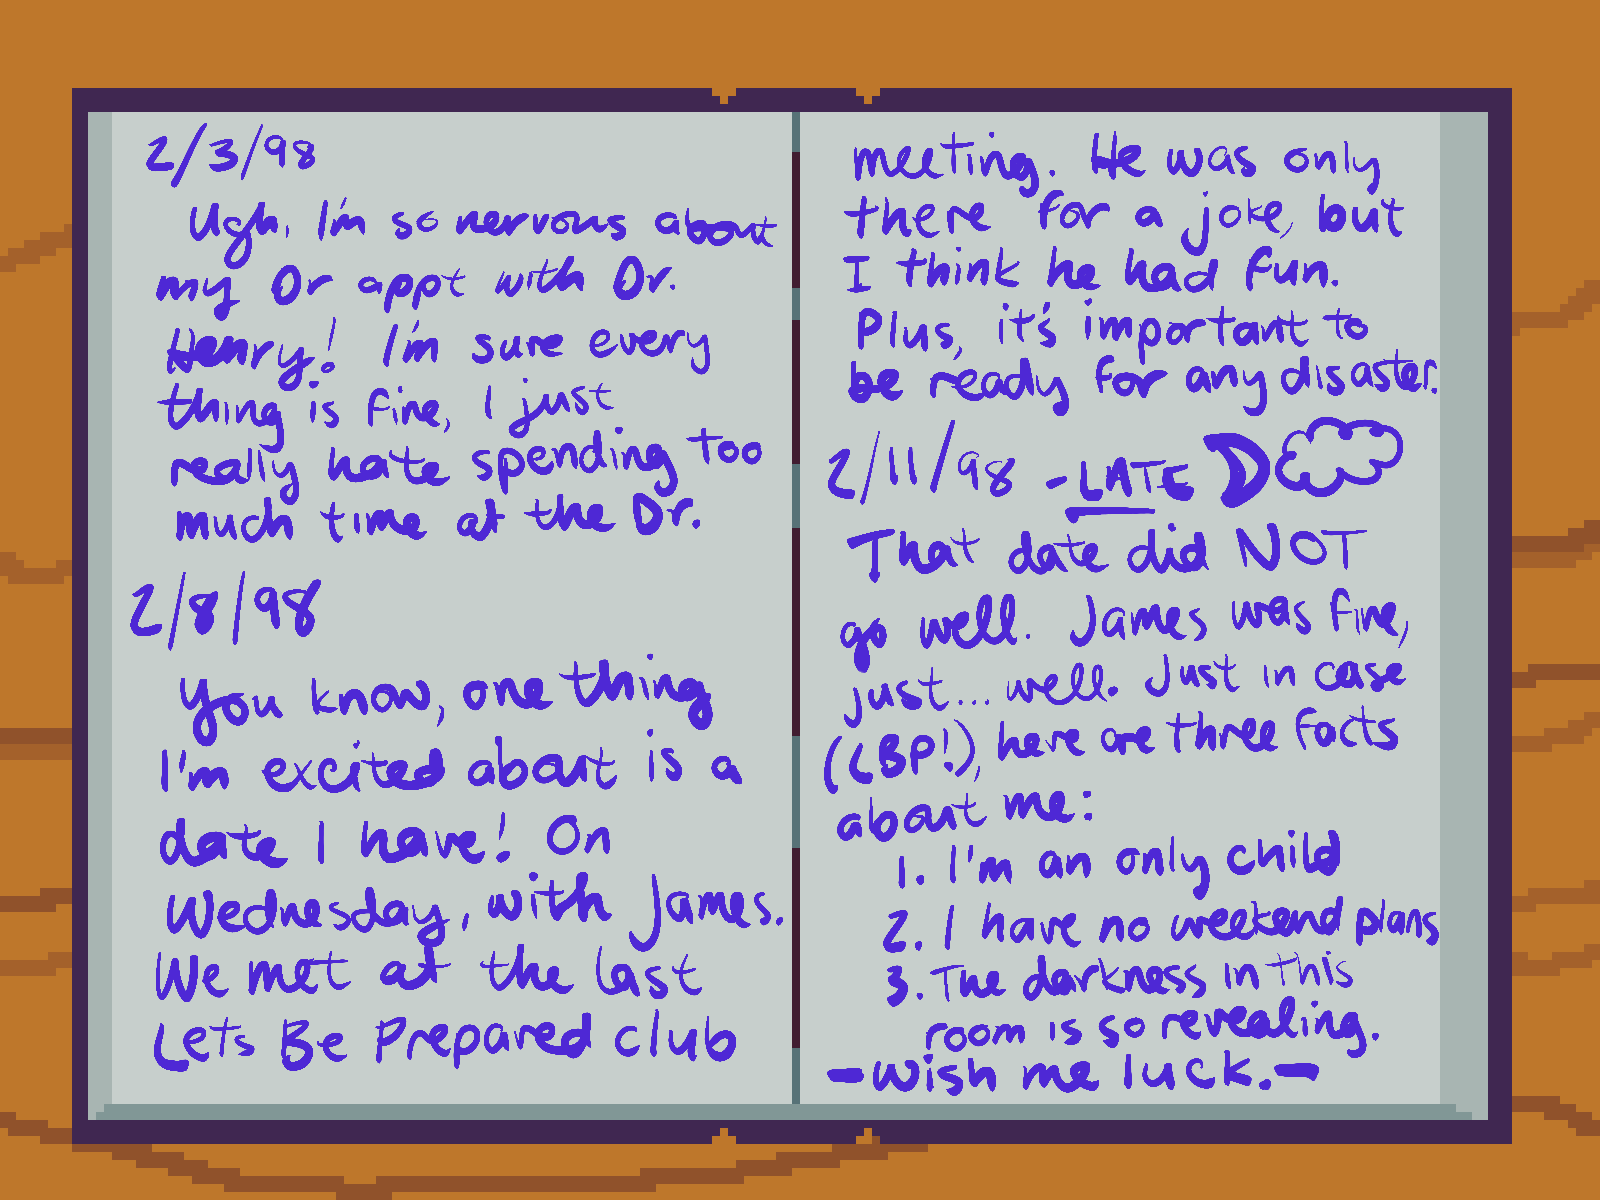 2/3/98
Ugh, I'm so nervous about
my Dr appt with Dr.
Henry! I'm sure every
thing is fine, I just
really hate spending too
much time at the Dr.
2/8/98
You know, one thing
I'm excited about is a
date I have! On
Wednesday, with James.
We met at the last
Lets Be Prepared club
meeting. He was only
there for a joke, but
I think he had fun.
Plus, it's important to
be ready for any disaster.
2/11/98 - LATE
That date did NOT
go well. James was fine,
just... well. Just in case
(LBP!), here are three facts
about me:
1. I'm an only child
2. I have no weekend plans
3. The darkness in this
room is so revealing.
- Wish me luck. -